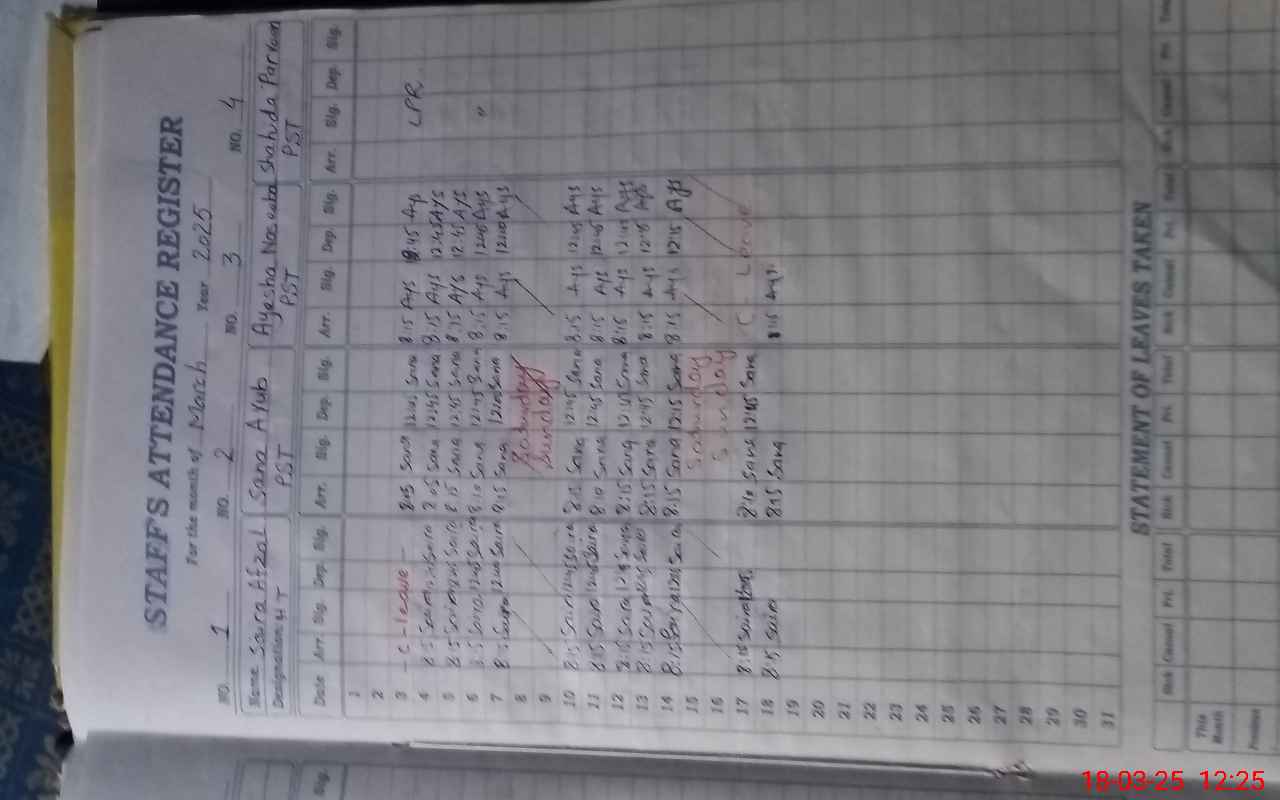 STAFF'S ATTENDANCE REGISTER
For the month of March Year 2025
NO. 1 NO. 2 NO. 3 NO. 4
Name Saira Afzal Sana Ayub Ayesha Naseeba Shahida Parveen
Designation HT PST PST PST
Date Arr. Sig. Dep. Sig. Arr. Sig. Dep. Sig. Arr. Sig. Dep. Sig. Arr. Sig. Dep. Sig.
1
2
3 - C - leave - 8:05 Sana 12:45 Sana 8:15 Ays 12:45 Ay LPR
4 8:5 Saira Saira 8:05 Sana 12:45 Sana 8:15 Ays 12:45 Ays
5 8:5 Saira 12:45 Saira 8:15 Sana 12:45 Sana 8:15 Ays 12:45 Ays
6 8:5 Saira 12:45 Saira 8:10 Sana 12:45 Sana 8:15 Ays 12:45 Ays "
7 8:5 Saira 12:00 Saira 8:15 Sana 12:00 Sana 8:15 Ays 12:00 Ays
8 Saturday
9 Sunday
10 8:15 Saira 12:45 Saira 8:15 Sana 12:45 Sana 8:15 Ays 12:45 Ays
11 8:15 Saira 12:45 Saira 8:10 Sana 12:45 Sana 8:15 Ays 12:45 Ays
12 8:15 Saira 12:45 Saira 8:15 Sana 12:45 Sana 8:15 Ays 12:45 Ays
13 8:15 Saira 12:45 Saira 8:15 Sana 12:45 Sana 8:15 Ays 12:45 Ays
14 8:15 Saira 12:15 Saira 8:15 Sana 12:15 Sana 8:15 Ays 12:15 Ays
15 Saturday
16 Sunday
17 8:10 Saira 8:10 Sana 12:45 Sana C - Leave
18 8:15 Saira 8:15 Sana 8:15 Ays
19
20
21
22
23
24
25
26
27
28
29
30
31
STATEMENT OF LEAVES TAKEN
Sick Casual Pri. Total Sick Casual Pri. Total Sick Casual Pri. Total Sick Casual Pri. Total
This Month
Previous
Sig.
18-03-25 12:25